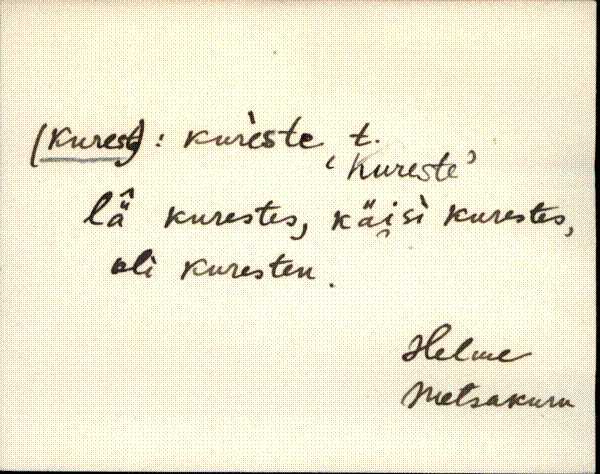 (Kurest) : kurèste, t.
‘Kureste’
lä̂ kurestes, käi̭sì kurestes,
oli kuresten.
Helme
Metsakuru